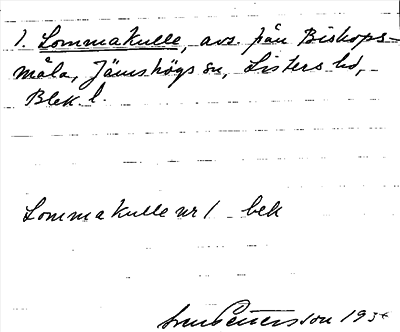 1. Lommakulle, avs. från Bishops-
måla, Jämshögs sn, Listers hd,
Blek. l.
Lommakulle nr 1 bek
Pettersson 19